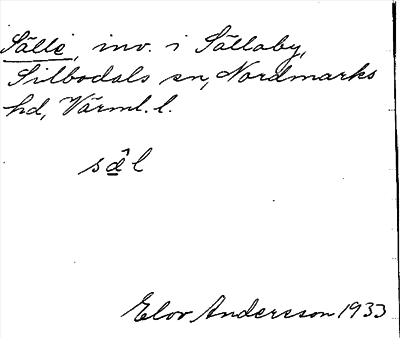 Sälle, inv. i Sälloby,
Silbodals sn, Nordmarks
hd, Värml. l.
sä̂l
Elov Andersson 1933